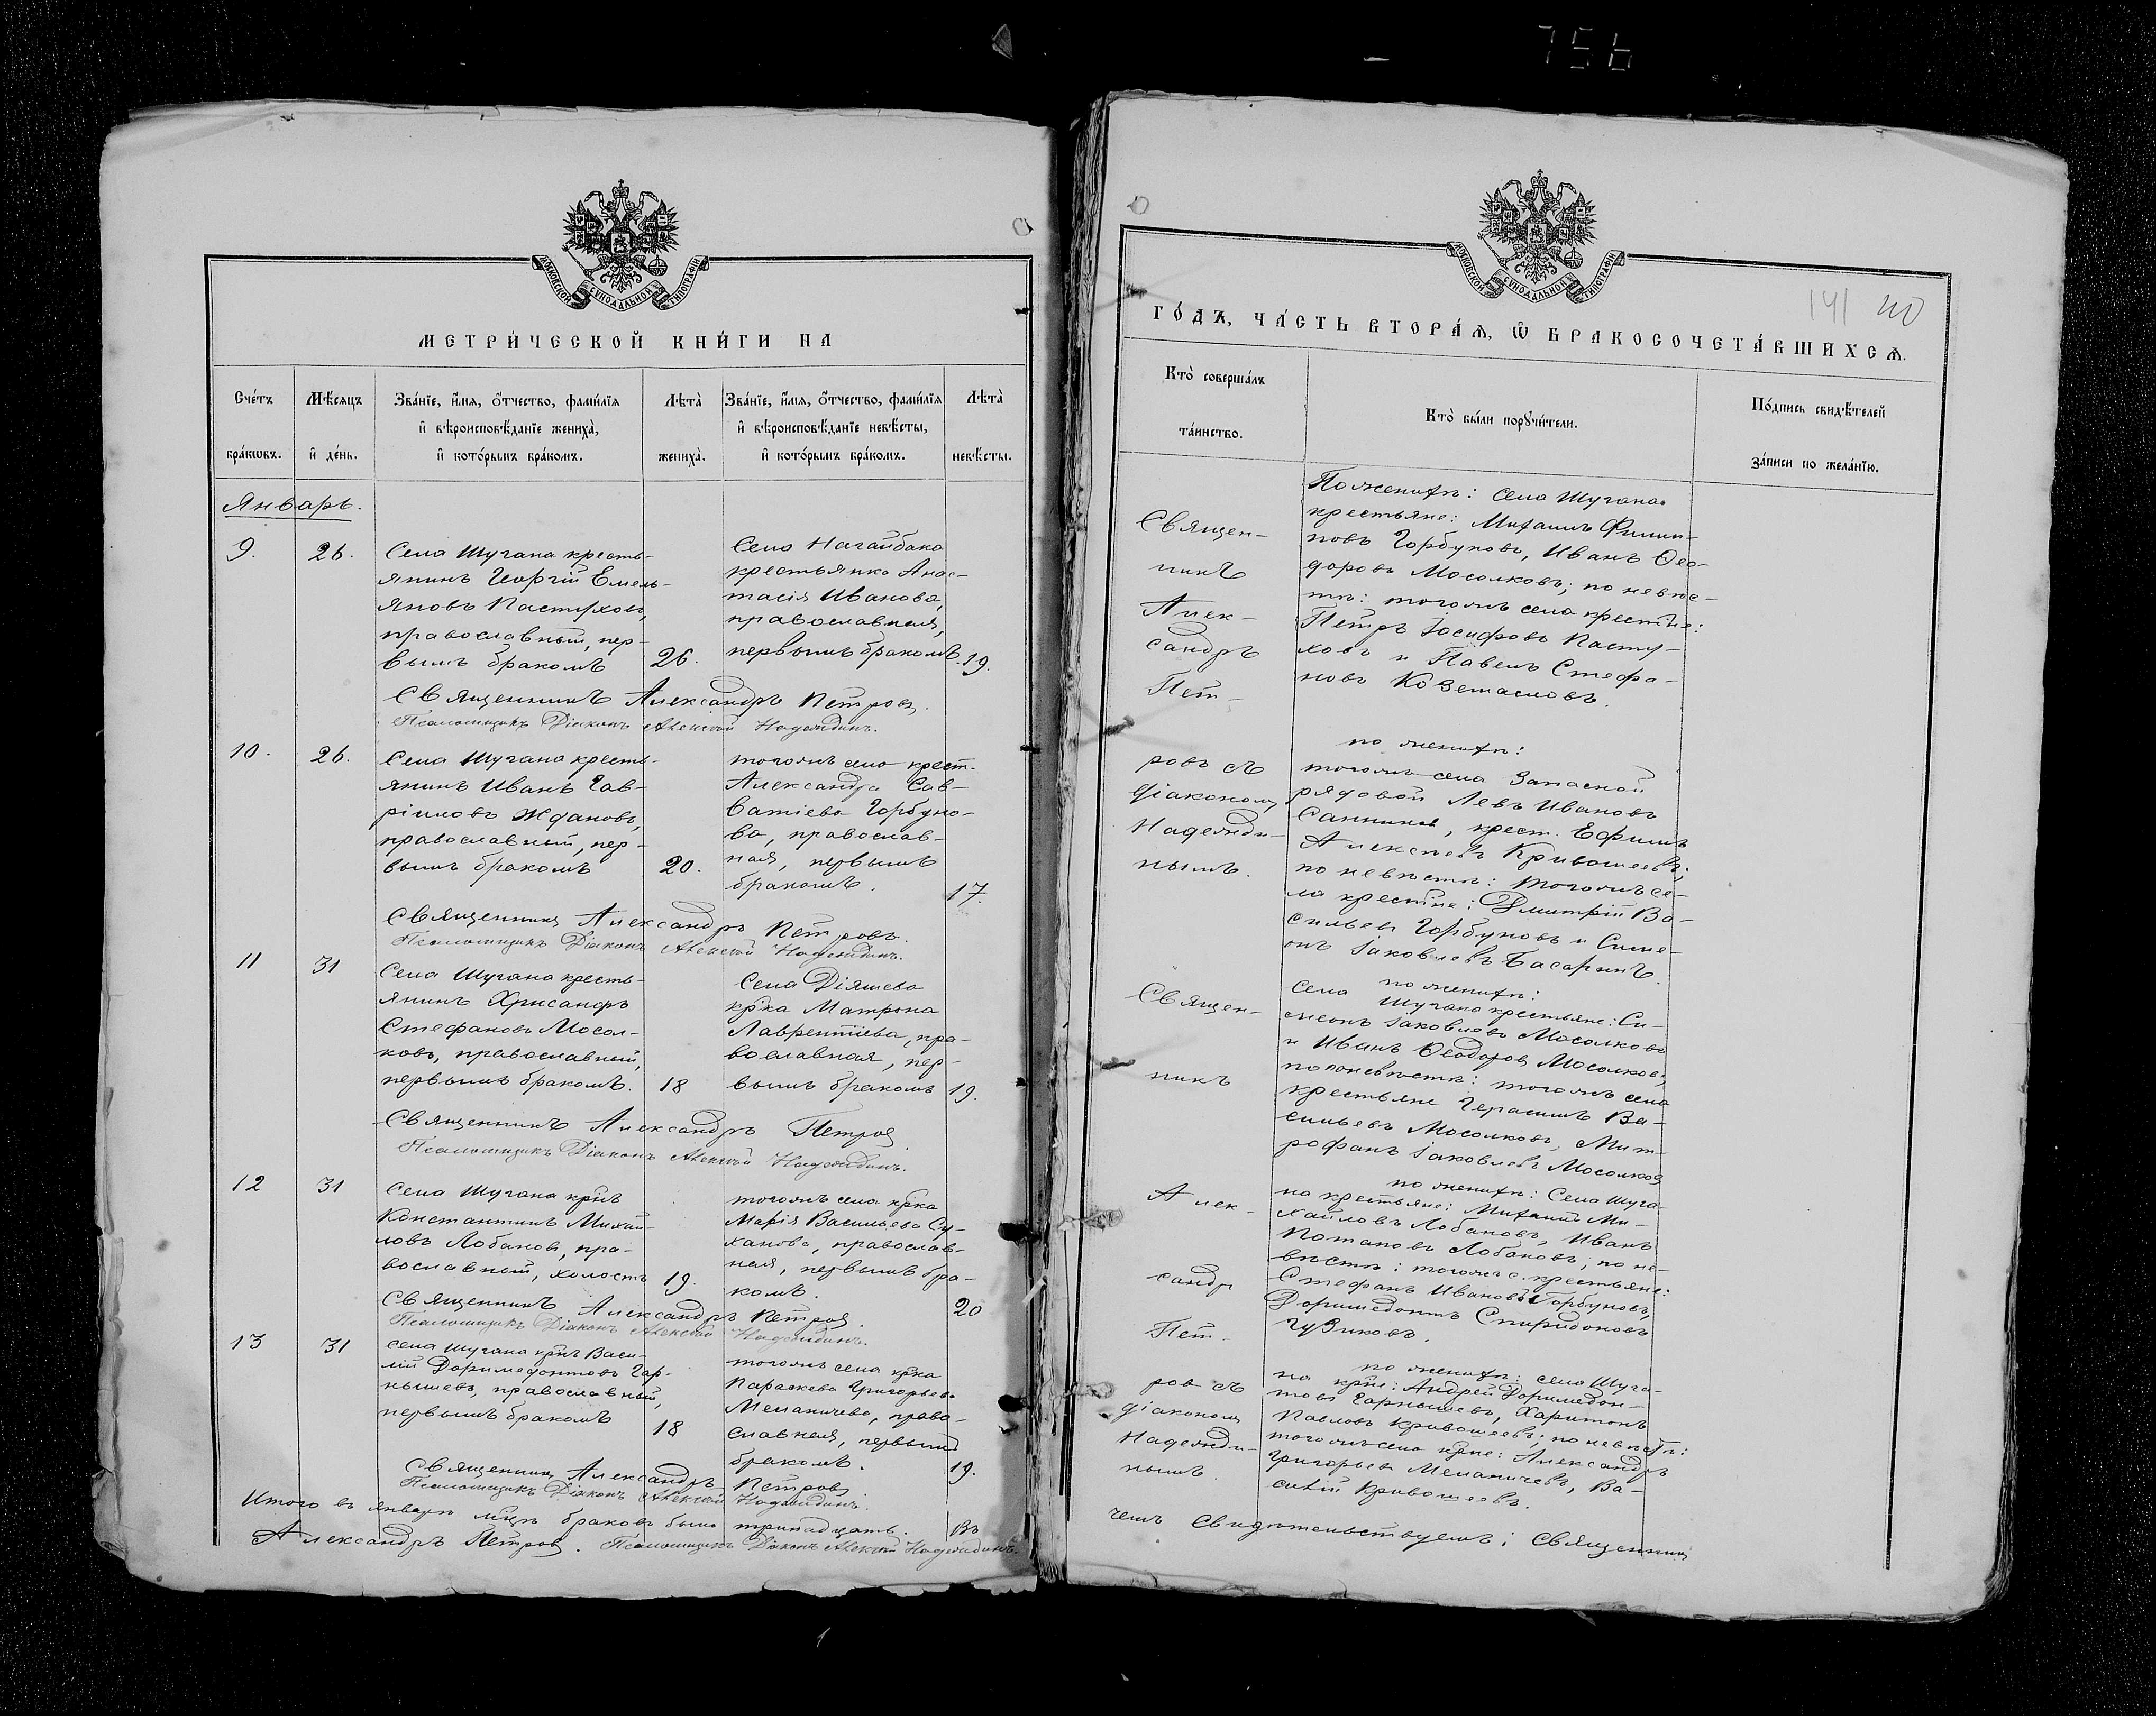 МОСКОВСКОЙ СѴНОДАЛЬНОЙ ТИПОГРАФІИ
МЕТРИ́ЧЕСКОЙ КНИ́ГИ НА
Сче́тъ бра́кѡвъ.
Мѣ́сяцъ и҆ де́нь.
Зва́нїе, и҆́мѧ, ѻ҆́тчество, фами́лїѧ
и҆ вѣроисповѣ́данїе жениха̀,
и҆ кото́рымъ бра́комъ.
Лѣта̀ жениха̀.
Зва́нїе, и҆́мѧ, ѻ҆́тчество, фами́лїѧ
и҆ вѣроисповѣ́данїе невѣ́сты,
и҆ кото́рымъ бра́комъ.
Лѣта̀ невѣ́сты.
Январь.
9.
26.
Села Шугана кресть-
янинъ Георгій Емель-
яновъ Пастуховъ,
православный, пер-
вымъ бракомъ
26.
Села Нагайбака
крестьянка Анас-
тасія Иванова,
православная,
первымъ бракомъ.
19.
Священникъ Александръ Петровъ.
Псаломщикъ Діаконъ Алексій Надеждинъ.
10.
26.
Села Шугана кресть-
янинъ Иванъ Гав-
ріиловъ Ждановъ,
православный, пер-
вымъ бракомъ
20.
тогожъ села крест.
Александра Сав-
ватіева Горбуно-
ва, православ-
ная, первымъ
бракомъ.
17.
Священникъ Александръ Петровъ.
Псаломщикъ Діаконъ Алексій Надеждинъ.
11
31
Села Шугана кресть-
янинъ Хрисанфъ
Стефановъ Мосол-
ковъ, православный,
первымъ бракомъ.
18
Села Діяшева
кр̃ка Матрона
Лаврентіева, пра-
вославная, пер-
вымъ бракомъ
19.
Священникъ Александръ Петровъ
Псаломщикъ Діаконъ Алексій Надеждинъ.
12
31
Села Шугана кр̃нъ
Константинъ Михай-
ловъ Лобановъ, пра-
вославный, холостъ
19.
тогожъ села кр̃ка
Марія Васильева Су-
ханова, православ-
ная, первымъ бра-
комъ.
20
Священникъ Александръ Петровъ.
Псаломщикъ Діаконъ Алексій Надеждинъ.
13
31
села Шугана кр̃нъ Васи-
лій Доримедонтовъ Гар-
нышевъ, православный,
первымъ бракомъ
18
тогожъ села кр̃ка
Параскева Григорьева
Меланичева, право-
славная, первымъ
бракомъ.
19.
Священникъ Александръ Петровъ
Псаломщикъ Діаконъ Алексій Надеждинъ.
Итого въ январѣ мц̃ѣ браковъ было тринадцать. Въ
Александръ Петровъ. Псаломщикъ Діаконъ Алексій Надеждинъ.
756
141 20
МОСКОВСКОЙ СѴНОДАЛЬНОЙ ТИПОГРАФІИ
ГО́ДЪ, ЧА́СТЬ ВТОРА́Ѧ, Ѡ҆ БРАКОСОЧЕТА́ВШИХСѦ.
Кто̀ соверша́лъ
та́инство.
Кто̀ бы́ли порꙋчи́тели.
По́дпись свидѣ́телей
за́писи по жела́нїю.
Священ-
никъ
Алек-
сандръ
Пет-
ровъ съ
діакономъ
Надежди-
нымъ.
По женихѣ: села Шугана
крестьяне: Михаилъ Филип-
повъ Горбуновъ, Иванъ Ѳео-
доровъ Мосолковъ; по невѣс-
тѣ: тогожъ села крестьяне:
Петръ Іосифовъ Пасту-
ховъ и Павелъ Стефа-
новъ
по женихѣ:
тогожъ села Запасной
рядовой Левъ Ивановъ
Санниковъ, крест. Ефимъ
Алексѣевъ Кривошеевъ;
по невѣстѣ: тогожъ се-
ла крестьяне: Дмитрій Ва-
сильевъ Горбуновъ и Симе-
онъ Іаковлевъ Басаринъ.
Священ-
никъ
Алек-
сандръ
Пет-
ровъ съ
діакономъ
Надежди-
нымъ.
по женихѣ:
села Шугана крестьяне: Си-
меонъ Іаковлевъ Мосолковъ
и Иванъ Ѳеодоровъ Мосолковъ,
по невѣстѣ: тогожъ села
крестьяне Герасимъ Ва-
сильевъ Мосолковъ, Мит-
рофанъ Іаковлевъ Мосолковъ
по женихѣ: Села Шуга-
на крестьяне: Михаилъ Ми-
хайловъ Лобановъ, Иванъ
Потаповъ Лобановъ, по не-
вѣстѣ: тогожъ с. крестьяне:
Стефанъ Ивановъ Горбуновъ,
Доримедонтъ Спиридоновъ
Гузиковъ.
по женихѣ: села Шуга-
на кр̃не: Андрей Доримедон-
товъ Гарнышевъ, Харитонъ
Павловъ Кривошеевъ; по невѣстѣ:
тогожъ села кр̃не: Александръ
Григорьевъ Меланичевъ, Ва-
силій Кривошеевъ.
чемъ свидѣтельствуемъ: Священникъ